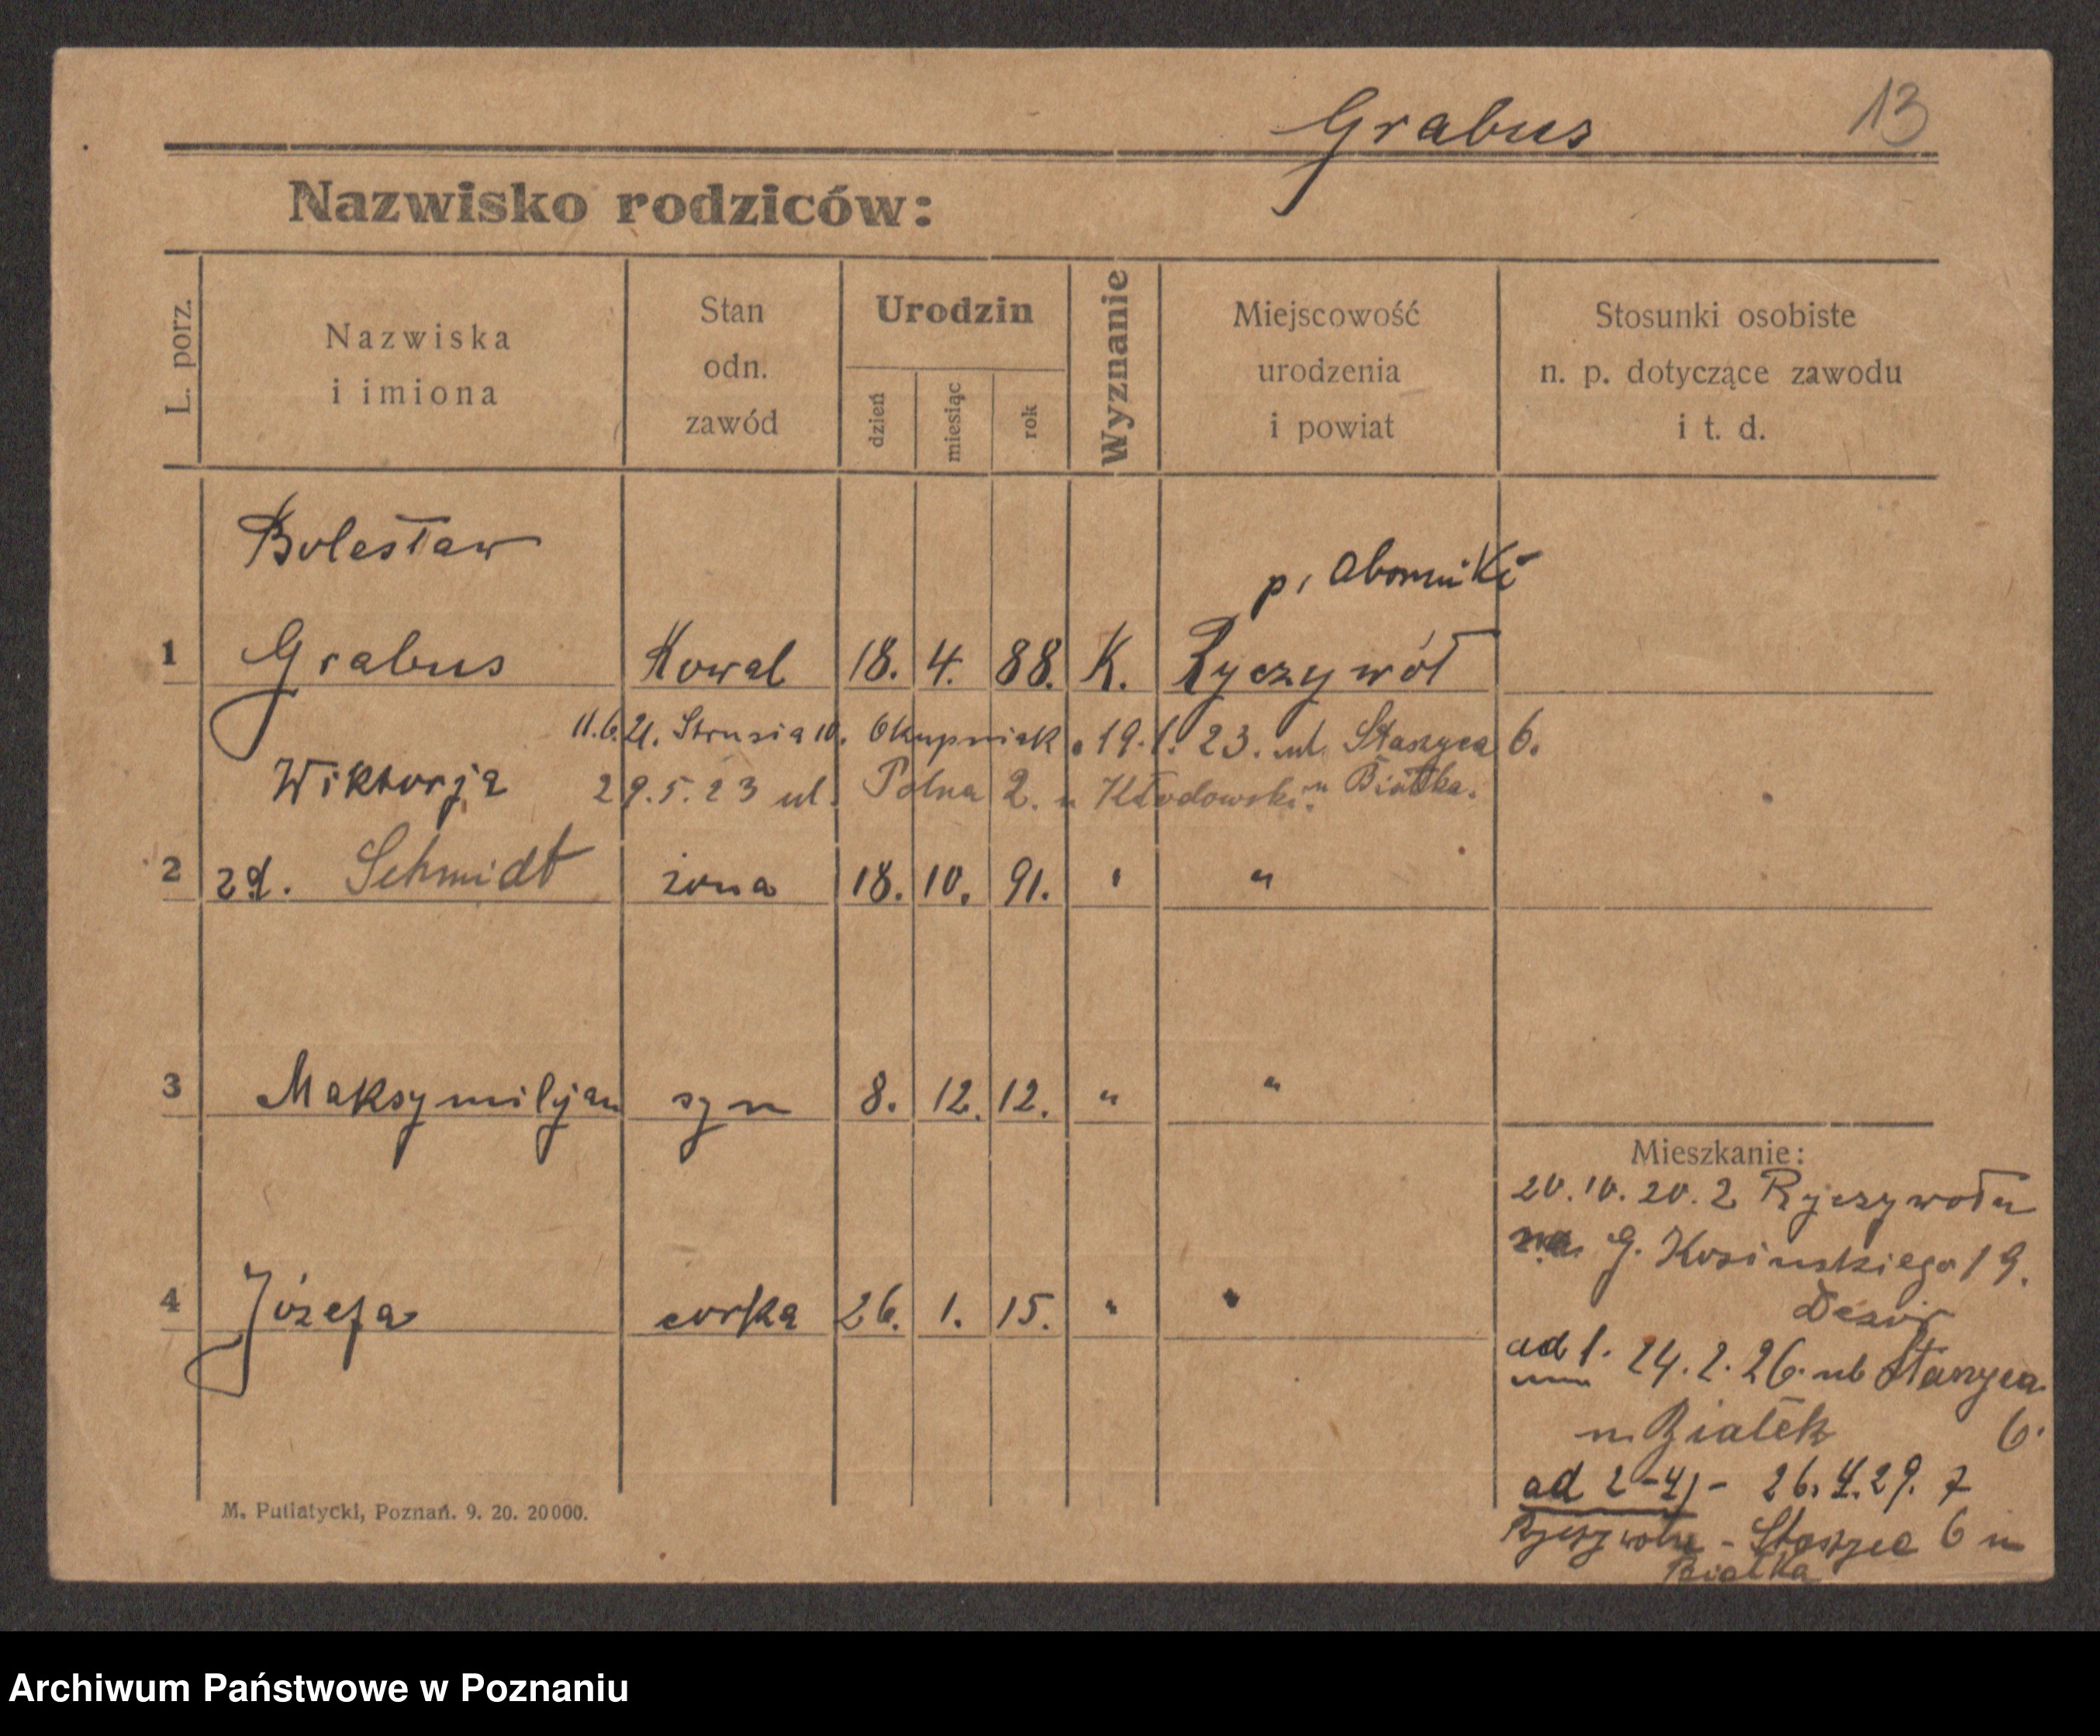 Grabus 13
Nazwisko rodziców:
L. porz.
Nazwiska i imiona
Stan odn. zawód
Urodzin
dzień miesiąc rok
Wyznanie
Miejscowość urodzenia i powiat
Stosunki osobiste n. p. dotyczące zawodu i t. d.
Bolesław
p. Oborniki
1 Grabus Kowal 18. 4. 88. K. Ryczywół
11.6.21. Strusia 10. Okupniak. 19.1.23. ul. Staszyca 6.
Wiktorja 29.5.23 ul. Polna 2. u Kłodowski. u Białka.
2 zd. Schmidt żona 18. 10. 91. " "
3 Maksymiljan syn 8. 12. 12. " "
Mieszkanie:
20.10.20. z Ryczywołu
G. Kosinskiego 19.
4 Józefa corka 26. 1. 15. " "
ad 1. 24.2.26. ul Staszyca
u Białek 6.
ad 2-4) - 26.4.29. z
Ryczywołu - Staszyca 6 u
Białka
M. Putiatycki, Poznań. 9. 20. 20000.
Archiwum Państwowe w Poznaniu